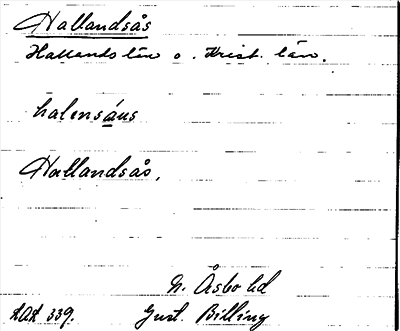 Hallandsås
Hallands län o. Krist. län.
halensáus
Hallandsås.
N. Åsbo hd
LAL 339. Gust. Billing